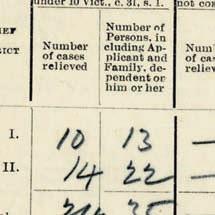 under 10 Vict., c. 31, s. 1.
not con
IEF
RICT
Number
of cases
relieved
Number of
Persons, in
cluding Ap-
plicant and
Family, de-
pendent on
him or her
Num
of ca
relie
I. 10 13 —
II. 14 22 —